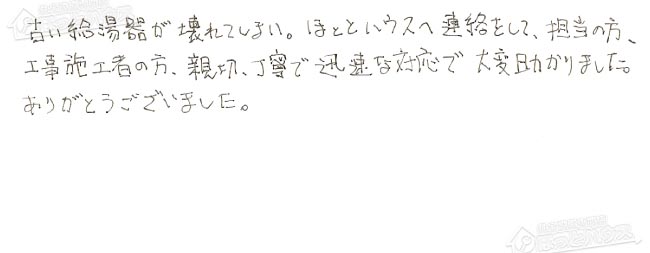 古い給湯器が壊れてしまい。ほっといハウスへ連絡をして、担当の方、
工事施工者の方、親切、丁寧で迅速な対応で大変助かりました。
ありがとうございました。